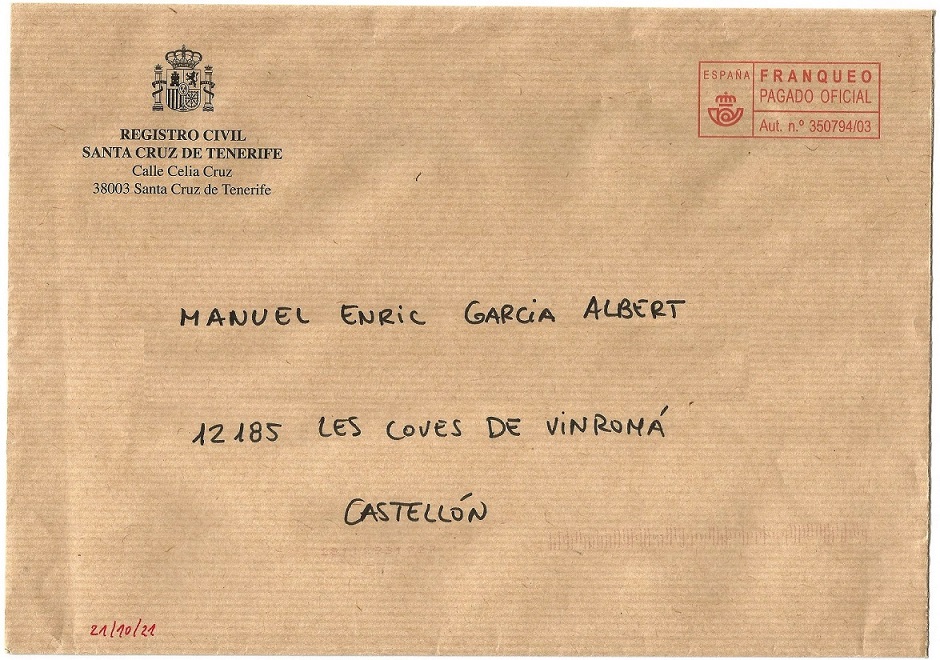 REGISTRO CIVIL
SANTA CRUZ DE TENERIFE
Calle Celia Cruz
38003 Santa Cruz de Tenerife
ESPAÑA
FRANQUEO
PAGADO OFICIAL
Aut. n.º 350794/03
MANUEL ENRIC GARCiA ALBERT
12185 LES COVES DE ViNROMÁ
CASTELLÓN
21/10/21